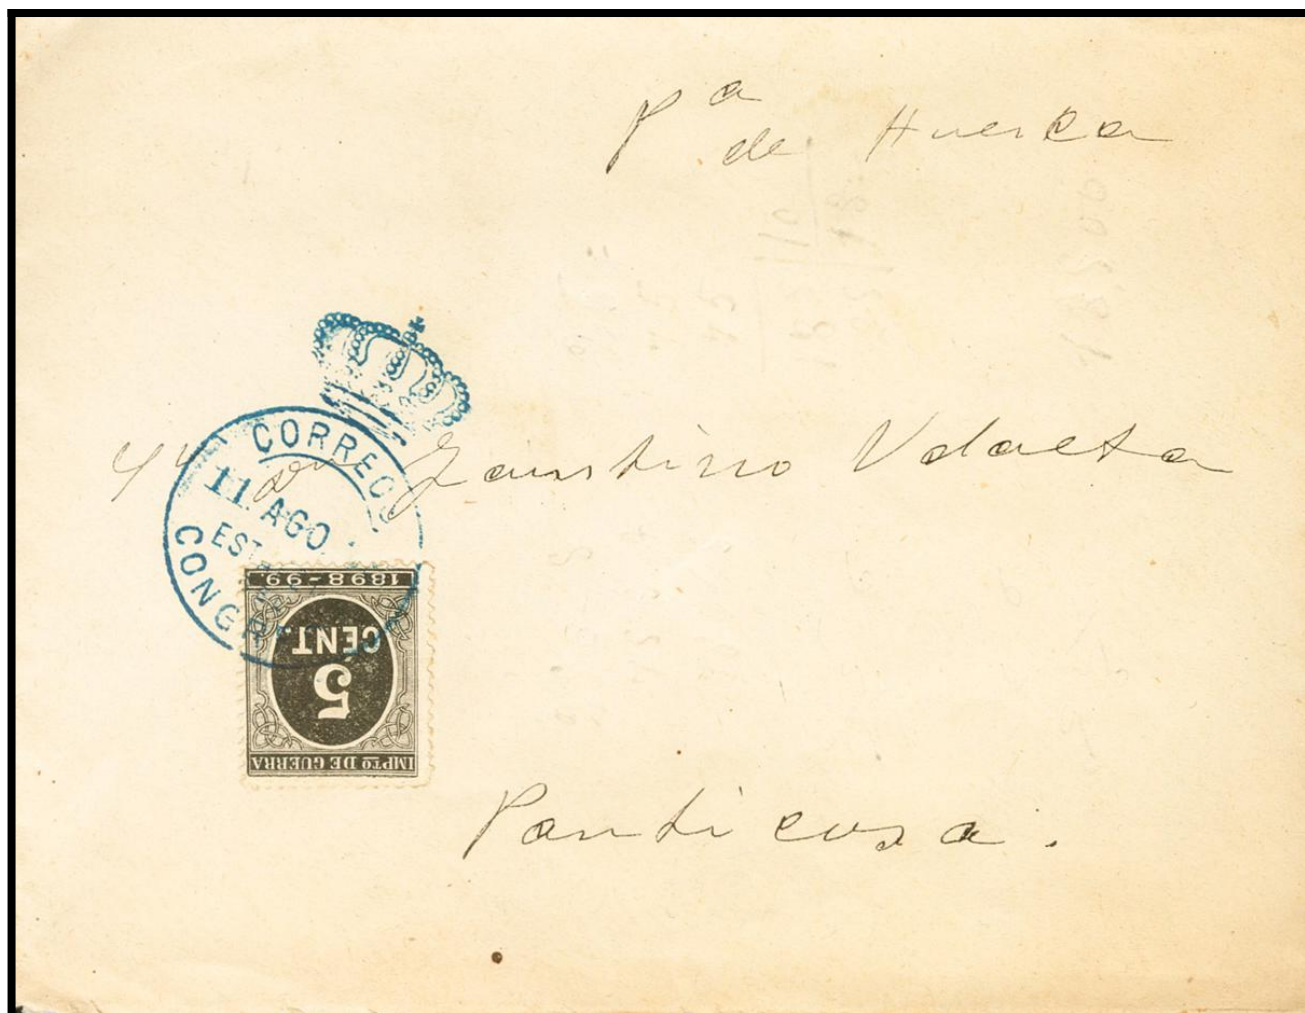 Pª de Huesca
CORREOS
11 AGO
EST
CONGRESO
Sr Dn Faustino Udaeta
1898-99
5
CENT.
IMPTO DE GUERRA
Panticosa.